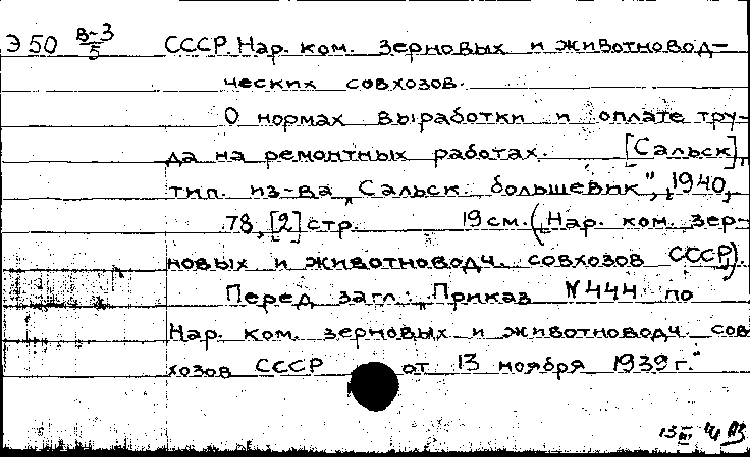 Э 50 В-3/5 СССР. Нар. ком. зерновых и животновод-
ческих совхозов.
О нормах выработки и оплате тру-
да на ремонтных работах. [Сальск],
тип. из-ва „Сальск. большевик", 1940,
78, [2] стр. 19 см. (Нар. ком. зер-
новых и животноводч. совхозов СССР).
Перед загл.: „Приказ №444 по
Нар. ком. зерновых и животноводч. сов
хозов СССР от 13 ноября 1939 г."
13 III 41